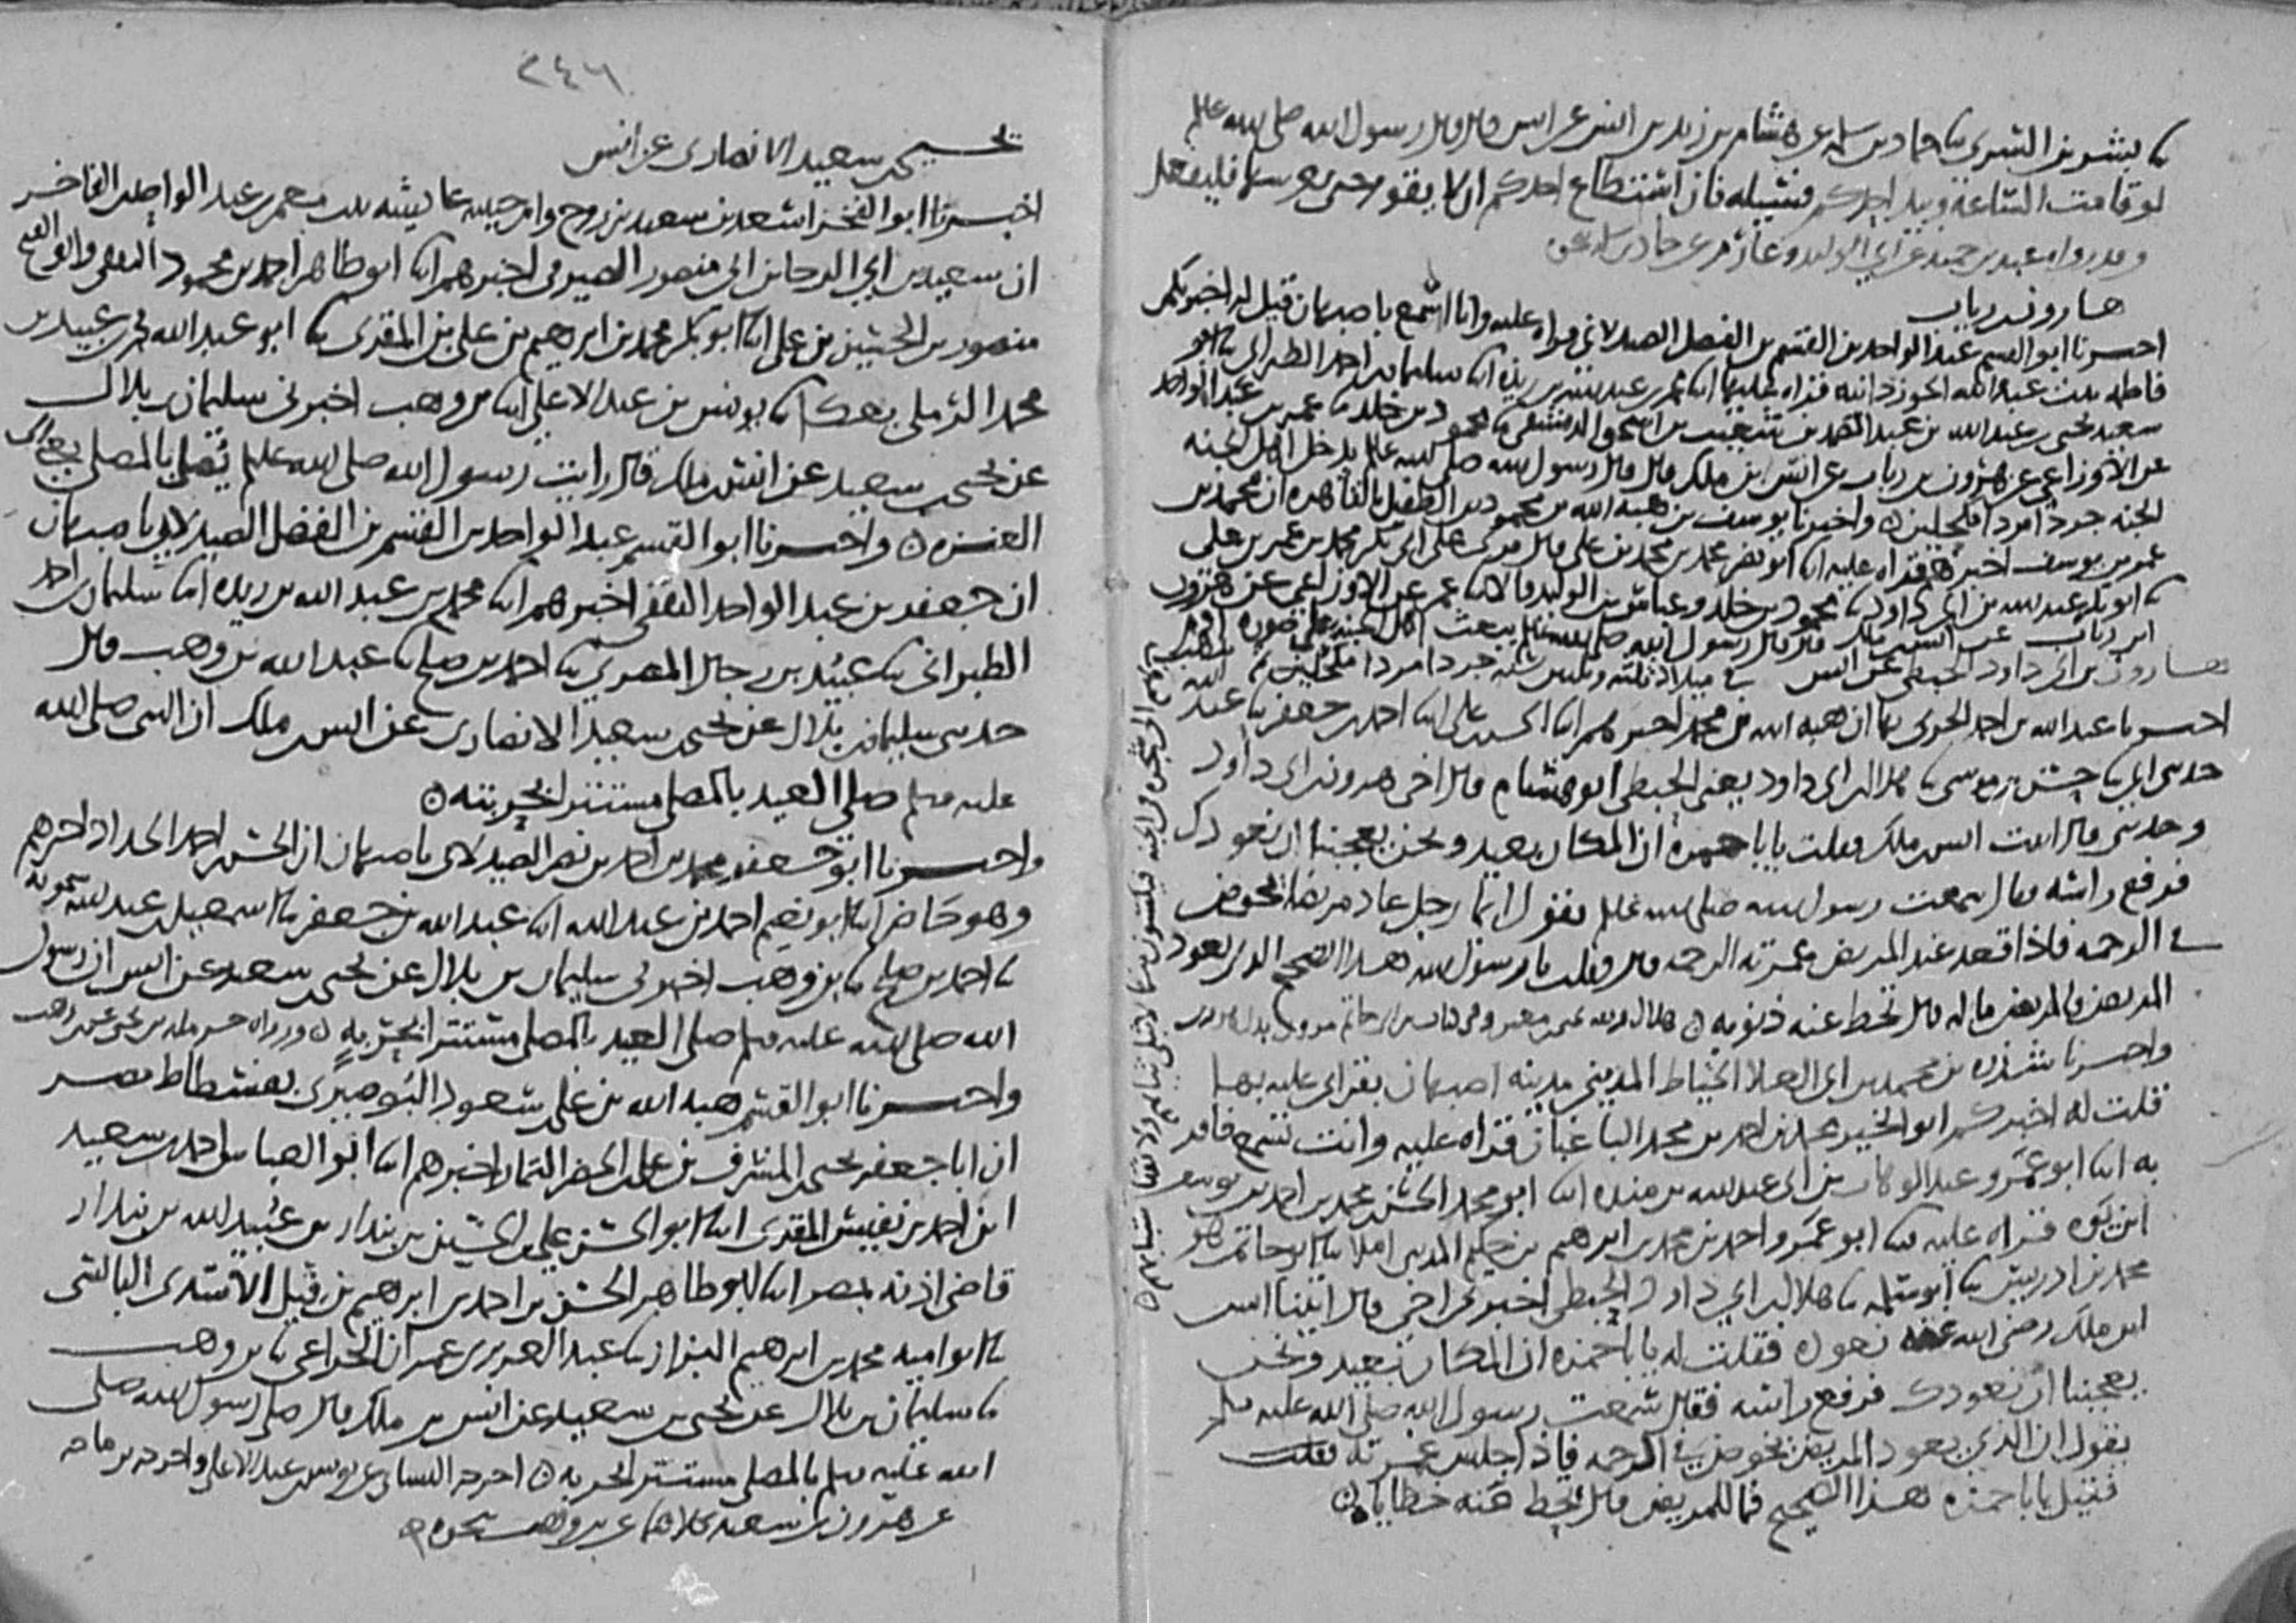 بشر بن السري حماد بن سلمة عن هشام بن زيد بن انس عن انس قال قال رسول الله صلى الله عليه
لو قامت الساعة وبيد احدكم فسيله فان استطاع احدكم ان لا يقوم حتى يغرسها فليفعل
وقد رواه عبد بن حميد عن ابي الوليد وعارم عن حماد بن سلمه
هارون بن رياب
اخبرنا ابو القسم عبد الواحد بن القسم بن الفضل الصيدلاني قراه عليه وانا اسمع باصبهان قيل له اخبرتكم
فاطمه بنت عبد الله الجوزدانيه قراه عليها محمد بن عبد الله بن ريذه سليمان بن احمد الطبراني
سعيد يحيى بن عبد الله بن عبد الصمد بن شعيب بن اسحق الدمشقي محمود بن خلد عمر بن عبد الواحد
عن الاوزاعي عن هرون بن رياب عن انس بن ملك قال قال رسول الله صلى الله عليه يدخل اهل الجنه
الجنه جردا مردا مكحلين واخبرنا يوسف بن هبه الله بن محمود بن الطفيل بالقاهره ان محمد بن
عمر بن يوسف اخبرهم قراه عليه ابو نصر محمد بن محمد بن علي قال قرى على ابي بكر محمد بن عمر بن علي
ابو بكر عبد الله بن ابي داود محمود بن خلد وعباس بن الوليد قالا عمر عن الاوزاعي عن هرون
ابن رياب عن انس بن ملك قال قال رسول الله صلى الله عليه يبعث اهل الجنه على صوره ادم
في ميلاد ثلثه وثلثين سنه جردا مردا مكحلين ثم يذهب بهم الى شجره في الجنه فيكسون منها لا تبلى ثيابهم ولا يفنى شبابهم
هارون بن ابي داود الحبطي عن انس
اخبرنا عبد الله بن احمد الحربي بها ان هبه الله بن محمد اخبرهم الحسن بن علي احمد بن جعفر عبد الله
حدثني ابي حسن بن موسى هلال بن ابي داود يعني الحبطي ابو هشام قال اخي هرون بن ابي داود
وحدثني قال اتيت انس بن ملك فقلت يا با حمزه ان المكان بعيد ونحن يعجبنا ان نعودك
فرفع راسه فقال سمعت رسول الله صلى الله عليه يقول ايما رجل عاد مريضا فانما يخوض
في الرحمه فاذا قعد عند المريض غمرته الرحمه قال فقلت يا رسول الله هذا الصحيح الذي يعود
المريض فالمريض ما له قال تحط عنه ذنوبه
واخبرنا محمد بن ابي العلا الخياط المديني مدينه اصبهان بقراتي عليه بها
قلت له اخبركم ابو الخير محمد بن احمد بن محمد الباغبان قراه عليه وانت تسمع فاقر
به ابو عمرو عبد الوهاب بن ابي عبد الله بن منده ابو محمد الحسن بن محمد بن احمد بن يوسف
ابن يوه قراه عليه ابو عمرو احمد بن محمد بن ابرهيم بن حكيم المديني املا ابو حاتم هو
محمد بن ادريس ابو سلمه هلال بن ابي داود الحبطي اخبرني اخي قال اتينا انس
ابن ملك رضي الله عنه نعوده فقلت له يا با حمزه ان المكان بعيد ونحن
يعجبنا ان نعودك فرفع راسه فقال سمعت رسول الله صلى الله عليه وسلم
يقول ان الذي يعود المريض يخوض في الرحمه فاذا جلس غمرته فقلت
فقيل يا با حمزه هذا الصحيح فما للمريض قال تحط عنه خطاياه
٢٤٦
يحيى بن سعيد الانصاري عن انس
اخبرنا ابو الفخر اسعد بن سعيد بن روح وام حبيبه عايشه بنت معمر بن عبد الواحد الفاخر
ان سعيد بن ابي الرجا بن ابي منصور الصيرفي اخبرهم ابو طاهر احمد بن محمود الثقفي وابو الفتح
منصور بن الحسين بن علي ابو بكر محمد بن ابرهيم بن علي بن المقري ابو عبد الله محمد بن عبيد بن
محمد الرملي بعكا يونس بن عبد الاعلى بن وهب اخبرني سليمان بن بلال
عن يحيى بن سعيد عن انس بن ملك قال رايت رسول الله صلى الله عليه يصلي بالمصلى يعني الى
العنزه واخبرنا ابو القسم عبد الواحد بن القسم بن الفضل الصيدلاني باصبهان
ان جعفر بن عبد الواحد الثقفي اخبرهم محمد بن عبد الله بن ريذه سليمان بن احمد
الطبراني عبيد بن رجال المصري احمد بن صلح عبد الله بن وهب قال
حدثني سليمان بن بلال عن يحيى بن سعيد الانصاري عن انس بن ملك ان النبي صلى الله
عليه وسلم صلى العيد بالمصلى مستتر الحربته
واخبرنا ابو جعفر محمد بن احمد بن نصر الصيدلاني باصبهان ان الحسن بن احمد الحداد اخبرهم
وهو حاضر ابو نعيم احمد بن عبد الله عبد الله بن جعفر اسمعيل بن عبد الله سمويه
احمد بن صلح بن وهب اخبرني سليمان بن بلال عن يحيى بن سعيد عن انس ان رسول
الله صلى الله عليه وسلم صلى العيد بالمصلى مستتر الحربه
واخبرنا ابو القسم هبه الله بن علي بن سعود البوصيري بفسطاط مصر
ان ابا جعفر يحيى بن المشرف بن علي بن الخضر التمار اخبرهم ابو العباس احمد بن سعيد
ابن احمد بن نفيس المقري ابو الحسن علي بن الحسين بن بندار بن عبيد الله بن بندار
قاضي اذنه بمصر ابو طاهر الحسن بن احمد بن ابرهيم بن فيل الاسدي البالسي
ابو اميه محمد بن ابرهيم البزاز عبد العزيز بن عمران الخزاعي بن وهب
سليمان بن بلال عن يحيى بن سعيد عن انس بن ملك قال صلى رسول الله صلى
الله عليه وسلم بالمصلى مستتر الحربه اخرجه النسائي عن يونس بن عبد الاعلى واخرجه بن ماجه
عن هرون بن سعيد كلاهما عن بن وهب بنحوه